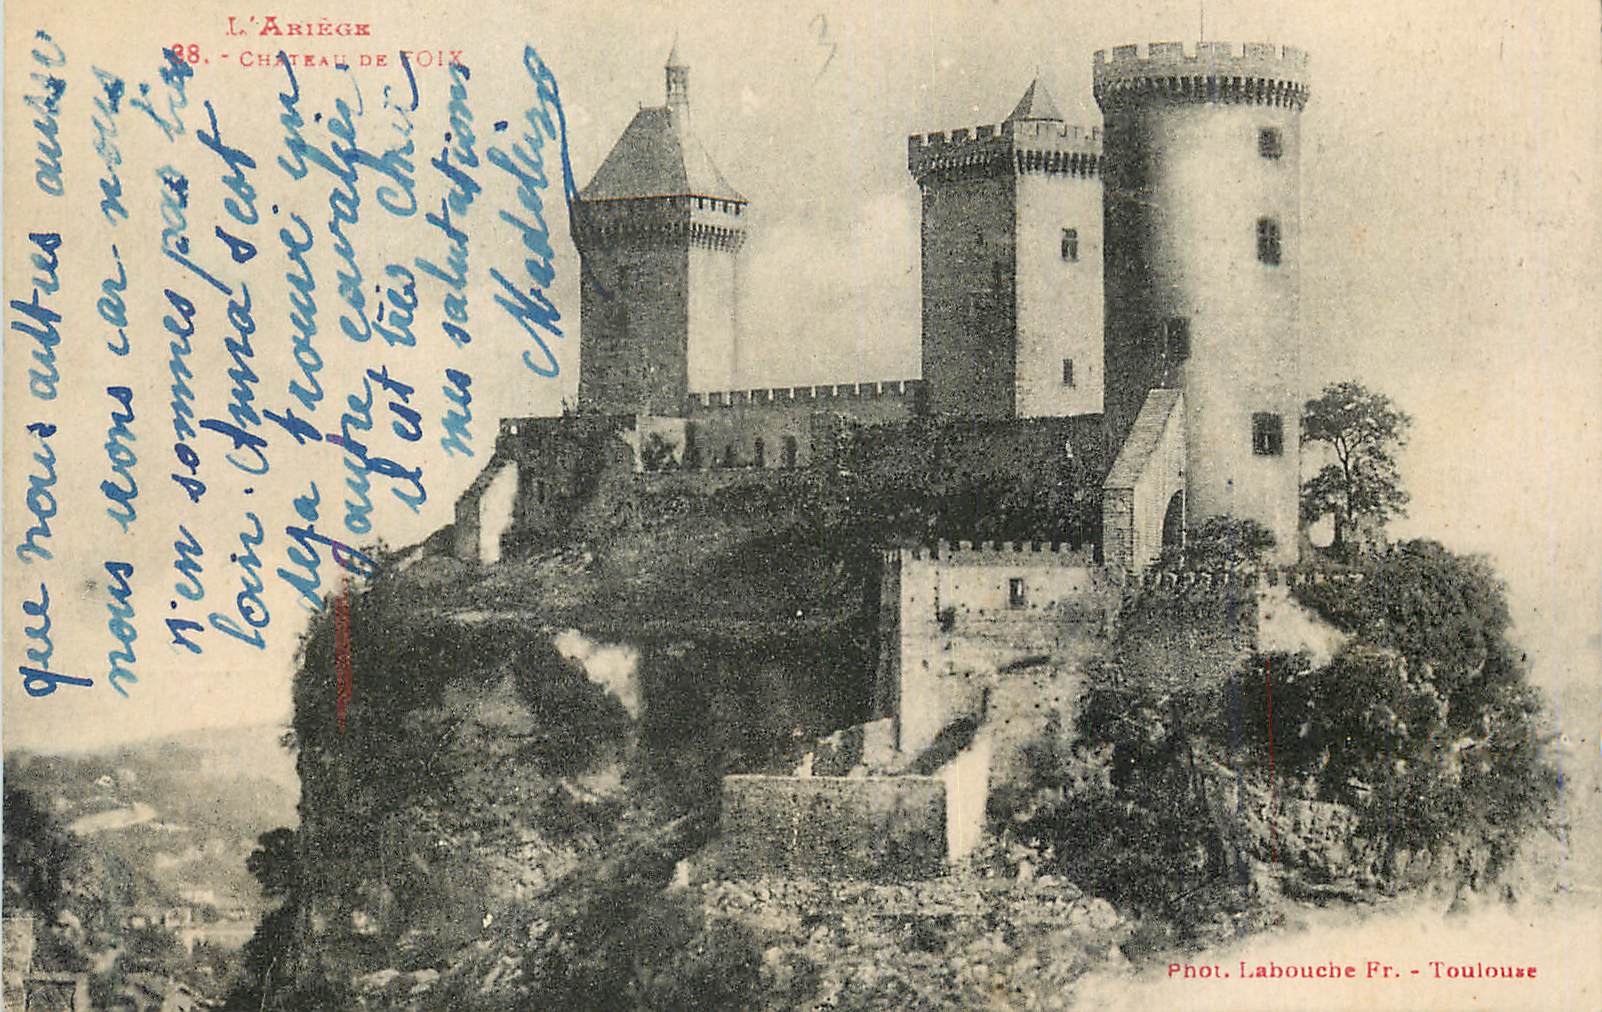 L'ARIÈGE
38. - CHATEAU DE FOIX
que nous autres aussi
nous avons car nous
n'en sommes pas bien
loin. Anna s'est
deja trouvé un
autre cavalier
il est très chic
mes salutations
Phot. Labouche Fr. - Toulouse
3